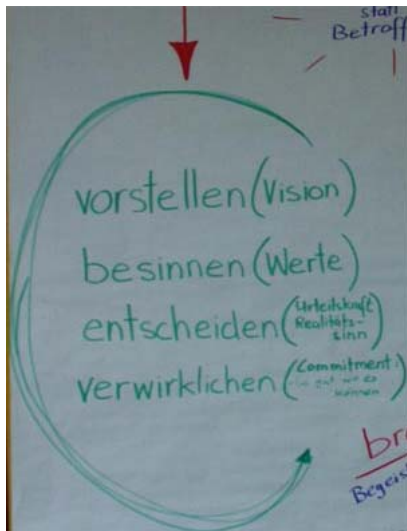 statt
Betroff
vorstellen (Vision)
besinnen (Werte)
entscheiden (Urteilskraft
Realitäts-
sinn)
verwirklichen (Commitment:
so gut wir es
können)
br
Begeist